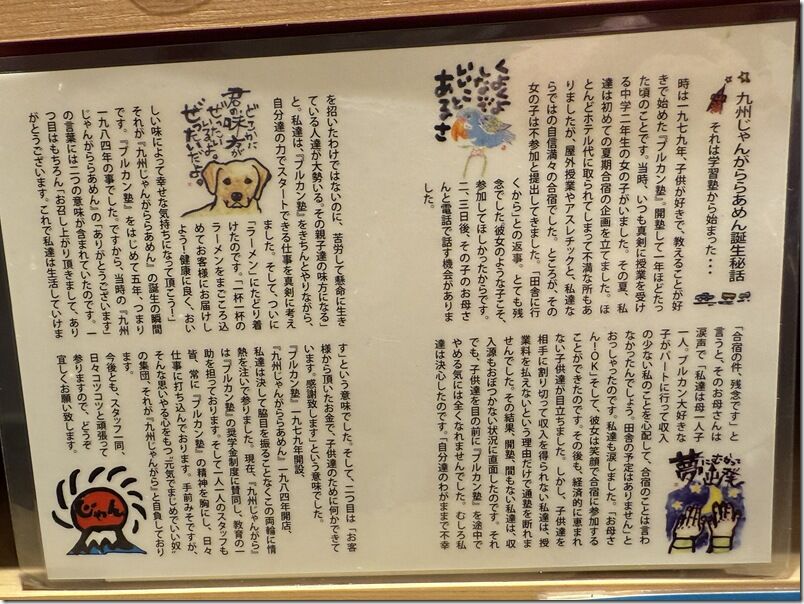 九州じゃんがららあめん誕生秘話
それは学習塾から始まった・・・
時は一九七九年、子供が好きで、教えることが好
きで始めた『ブルカン塾』開塾して一年ほどたっ
た頃のことです。当時、いつも真剣に授業を受け
る中学二年生の女の子がいました。その夏、私
達は初めての夏期合宿の企画を立てました。ほ
とんどホテル代に取られてしまって不満な所もあ
りましたが、屋外授業やアスレチックと、私達な
らではの自信満々の合宿でした。ところが、その
女の子は不参加と提出してきました。「田舎に行
くから」との返事。とても残
念でした。彼女のような子こそ、
参加してほしかったからです。
二、三日後、その子のお母さ
んと電話で話す機会がありま
した。
くよくよ
しなさんな
いいこと
あるさ
「合宿の件、残念です」と
言うと、そのお母さんは
涙声で「私達は母一人子
一人。ブルカン大好きな
子がパートに行って収入
の少ない私のことを心配して、合宿のことは言わ
なかったんでしょう。田舎の予定はありません」と
おっしゃったのです。私達も涙しました。「お母さ
ん!OK」そして、彼女は笑顔で合宿に参加する
ことができたのです。その後も、経済的に恵まれ
ない子供達が目立ちました。しかし、子供達を
相手に割り切って収入を得られない私達は、授
業料を払えないという理由だけで通塾を断れま
せんでした。その結果、開塾、間もない私達は、収
入源もおぼつかない状況に直面したのです。それ
でも、子供達を目の前に『ブルカン塾』を途中で
やめる気には全くなれませんでした。むしろ私
達は決心したのです。「自分達のわがままで不幸
夢にむかって出発
を招いたわけではないのに、苦労して懸命に生き
ている人達が大勢いる。その親子達の味方になる」
と。私達は、『ブルカン塾』をきちんとやりながら、
自分達の力でスタートできる仕事を真剣に考え
ました。そして、ついに
「ラーメン」にたどり着
けたのです。「一杯一杯の
ラーメンをまごころ込
めてお客様にお届けし
よう!健康に良く、おい
しい味によって幸せな気持ちになって頂こう!」
それが『九州じゃんがららあめん』の誕生の瞬間
です。『ブルカン塾』をはじめて五年、つまり
一九八四年の事でした。ですから、当時の『九州
じゃんがららあめん』の「ありがとうございます」
の言葉には二つの意味が含まれていたのです。一
つ目はもちろん「お召し上がり頂きまして、あり
がとうございます。これで私達は生活していけま
どこかに
ぜったい
いるよ。
君の味方が
ぜったいだよ。
す」という意味でした。そして、二つ目は「お客
様から頂いたお金で、子供達のために何かできて
います。感謝致します」という意味でした。
『ブルカン塾』一九七九年開設、
『九州じゃんがららあめん』一九八四年開店、
私達は決して脇目を振ることなくこの両輪に情
熱を注いで参りました。現在、『九州じゃんがら』
は『ブルカン塾』の奨学金制度に賛同し、教育の一
助を担っております。そして一人一人のスタッフも
皆、常に『ブルカン塾』の精神を胸にし、日々
仕事に打ち込んでおります。手前みそですが、
そんな思いやる心をもつ"元気でまじめでいい奴"
の集団、それが『九州じゃんがら』と自負しており
ます。
今後とも、スタッフ一同、
日々コツコツと頑張って
参りますので、どうぞ
宜しくお願い致します。
じゃん